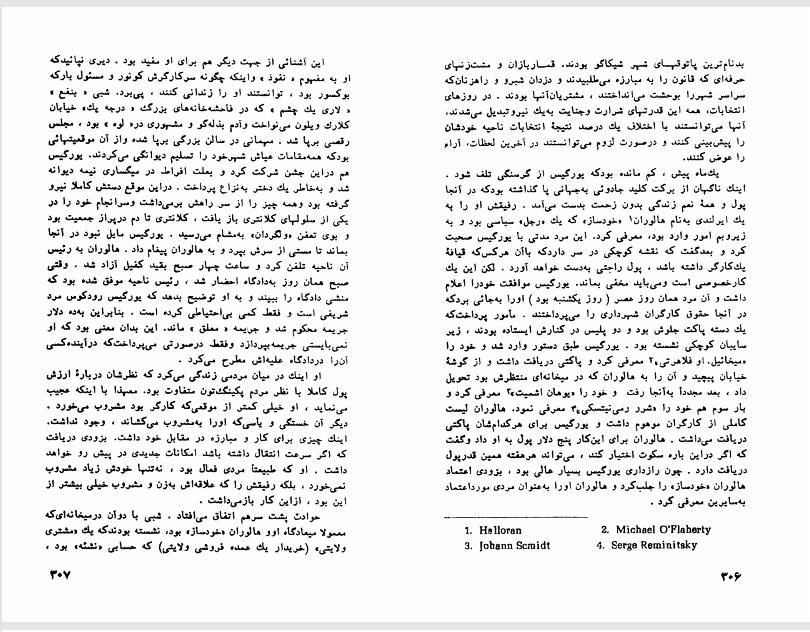 بدنام‌ترین پاتوقهای شهر شیکاگو بودند. قماربازان و مشت‌زنهای
حرفه‌ای که قانون را به مبارزه می‌طلبیدند و دزدان شبرو و راهزنان‌که
سراسر شهررا بوحشت می‌انداختند ، مشتریان‌آنها بودند . در روزهای
انتخابات، همه این قدرتهای شرارت وجنایت به‌یك نیروتبدیل می‌شدند،
آنها می‌توانستند با اختلاف یك درصد نتیجهٔ انتخابات ناحیه خودشان
را پیش‌بینی کنند و درصورت لزوم می‌توانستند در آخرین لحظات، آراء
را عوض کنند.
یك‌ماه پیش ، کم مانده بودکه یورگیس از گرسنگی تلف شود .
اینك ناگهان از برکت کلید جادوئی به‌جهانی پا گذاشته بودکه در آنجا
پول و همهٔ نعم زندگی بدون زحمت بدست می‌آمد . رفیقش او را به
یك ایرلندی به‌نام هالوران۱ «خودساز» که یك «رجل» سیاسی بود و به
زیروبم امور وارد بود، معرفی کرد. این مرد مدتی با یورگیس صحبت
کرد و بعدگفت که نقشه کوچکی در سر داردکه باآن هرکس‌که قیافهٔ
یك‌کارگر داشته باشد ، پول راحتی به‌دست خواهد آورد . لکن این یك
کارخصوصی است ومی‌باید مخفی بماند. یورگیس موافقت خودرا اعلام
داشت و آن مرد همان روز عصر ( روز یکشنبه بود ) اورا به‌جائی بردکه
در آنجا حقوق کارگران شهرداری را می‌پرداختند . مأمور پرداخت‌که
یك دسته پاکت جلوش بود و دو پلیس در کنارش ایستاده بودند ، زیر
سایبان کوچکی نشسته بود . یورگیس طبق دستور وارد شد و خود را
«میخائیل. او فلاهرتی»۲ معرفی کرد و پاکتی دریافت داشت و از گوشهٔ
خیابان پیچید و آن را به هالوران که در میخانه‌ای منتظرش بود تحویل
داد ، بعد مجدداً به‌آنجا رفت و خود را «یوهان اشمیت»۳ معرفی کرد و
بار سوم هم خود را «شرر رمی‌نیتسکی»۴ معرفی نمود. هالوران لیست
کاملی از کارگران موهوم داشت و یورگیس برای هرکدام‌شان پاکتی
دریافت می‌داشت . هالوران برای این‌کار پنج دلار پول به او داد وگفت
که اگر دراین باره سکوت اختیار کند ، می‌تواند هرهفته همین قدرپول
دریافت دارد . چون رازداری یورگیس بسیار عالی بود ، بزودی اعتماد
هالوران «خودساز» را جلب‌کرد و هالوران اورا به‌عنوان مردی مورداعتماد
به‌سایرین معرفی کرد .
1. Halloran 2. Michael O'Flaherty
3. Johann Scmidt 4. Serge Reminitsky
۳۰۶
این آشنائی از جهت دیگر هم برای او مفید بود . دیری نپائیدکه
او به مفهوم « نفوذ » واینکه چگونه سرکارگرش کونور و مسئول بارکه
بوکسور بود ، توانستند او را زندانی کنند ، پی‌برد. شبی « بنفع »
« لاری یك چشم » که در فاحشه‌خانه‌های بزرگ « درجه یك» خیابان
کلارك ویلون می‌نواخت وآدم بذله‌گو و مشهوری دره لوه » بود ، مجلس
رقصی برپا شد . میهمانی در سالن بزرگی برپا شده واز آن موقعیتهائی
بودکه همه‌مقامات عیاش شهرخود را تسلیم دیوانگی می‌کردند. یورگیس
هم دراین جشن شرکت کرد و بعلت افراط در میگساری نیمه دیوانه
شد و به‌خاطر یك دختر به‌نزاع پرداخت . دراین موقع دستش کاملا نیرو
گرفته بود وهمه چیز را از سر راهش برمی‌داشت وسرانجام خود را در
یکی از سلولهای کلانتری باز یافت ، کلانتری تا دم درپراز جمعیت بود
و بوی تعفن «ولگردان» به‌مشام می‌رسید . یورگیس مایل نبود در آنجا
بماند تا مستی از سرش بپرد و به هالوران پیغام داد . هالوران به رئیس
آن ناحیه تلفن کرد و ساعت چهار صبح بقید کفیل آزاد شد . وقتی
صبح همان روز به‌دادگاه احضار شد ، رئیس ناحیه موفق شده بود که
منشی دادگاه را ببیند و به او توضیح بدهد که یورگیس رودکوس مرد
شریفی است و فقط کمی بی‌احتیاطی کرده است . بنابراین به‌ده دلار
جریمه محکوم شد و جریمه « معلق » ماند. این بدان معنی بود که او
نمی‌بایستی جریمه‌بپردازد وفقط درصورتی می‌پرداخت‌که درآینده‌کسی
آن‌را دردادگاه علیه‌اش مطرح می‌کرد .
او اینك در میان مردمی زندگی می‌کرد که نظرشان دربارهٔ ارزش
پول کاملا با نظر مردم پکینگ‌تون متفاوت بود. معهذا با اینکه عجیب
می‌نماید ، او خیلی کمتر از موقعی‌که کارگر بود مشروب می‌خورد .
دیگر آن خستگی و یأسی‌که اورا به‌مشروب می‌کشاند ، وجود نداشت.
اینك چیزی برای کار و مبارزه در مقابل خود داشت. بزودی دریافت
که اگر سرعت انتقال داشته باشد امکانات جدیدی در پیش رو خواهد
داشت . او که طبیعتاً مردی فعال بود ، نه‌تنها خودش زیاد مشروب
نمی‌خورد ، بلکه رفیقش را که علاقه‌اش به‌زن و مشروب خیلی بیشتر از
این بود ، ازاین کار بازمی‌داشت .
حوادث پشت سرهم اتفاق می‌افتاد . شبی با دوآن درمیخانه‌ای‌که
معمولا میعادگاه اوو هالوران «خودساز» بود، نشسته بودندکه یك «مشتری
ولایتی» (خریدار یك عمده فروشی ولایتی) که حسابی «نشئه» بود ،
۳۰۷